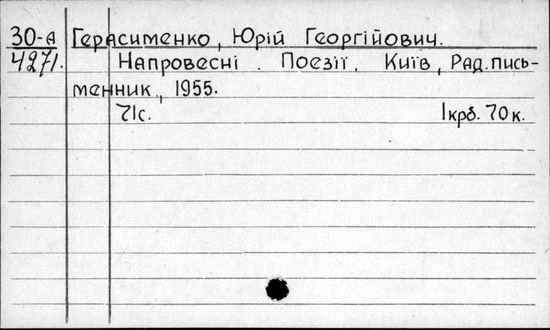 30-а Герасименко, Юрій Георгійович.
4271. Напровесні. Поезії. Київ, Рад.пись-
менник, 1955.
71с. 1крб. 70к.